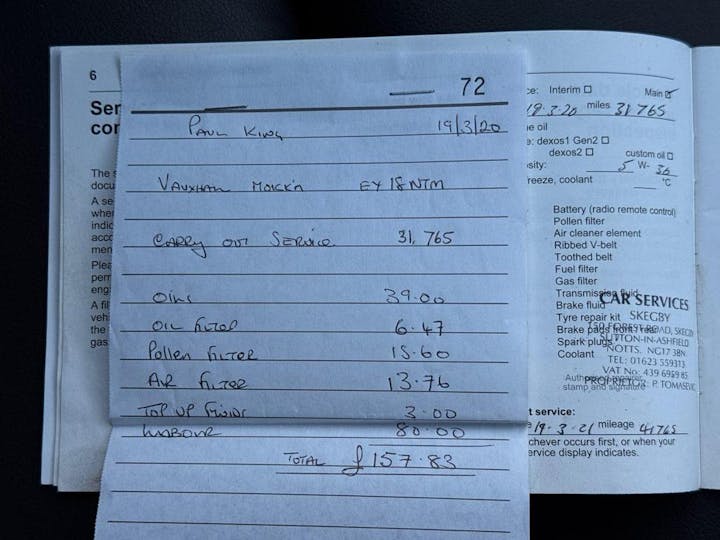 6
Ser
con
The s
docu
A se
whe
indic
acco
men
Plea
perm
eng
A fil
vehi
the
gas
72
PAUL KING 19/3/20
VAUXHALL MOKKA EY18NTM
CARRY OUT SERVICE 31,765
OILS 39.00
OIL FILTER 6.47
POLLEN FILTER 15.60
AIR FILTER 13.76
TOP UP FLUIDS 3.00
LABOUR 80.00
TOTAL £157.83
ce: Interim Main
19.3.20 miles 31765
ne oil
e: dexos1 Gen2
dexos2 custom oil
sity: 5 W- 30
reeze, coolant °C
Battery (radio remote control)
Pollen filter
Air cleaner element
Ribbed V-belt
Toothed belt
Fuel filter
Gas filter
Transmission fluid
Brake fluid
Tyre repair kit
Brake pads front / rear
Spark plugs
Coolant
Authorised repairer
stamp and signature
CAR SERVICES
SKEGBY
150 FOREST ROAD, SKEGBY
SUTTON-IN-ASHFIELD
NOTTS. NG17 3BN
TEL: 01623 559313
VAT No: 439 6959 85
PROPRIETOR: P. TOMASEVIC
t service:
e 19.3.21 mileage 41765
chever occurs first, or when your
ervice display indicates.